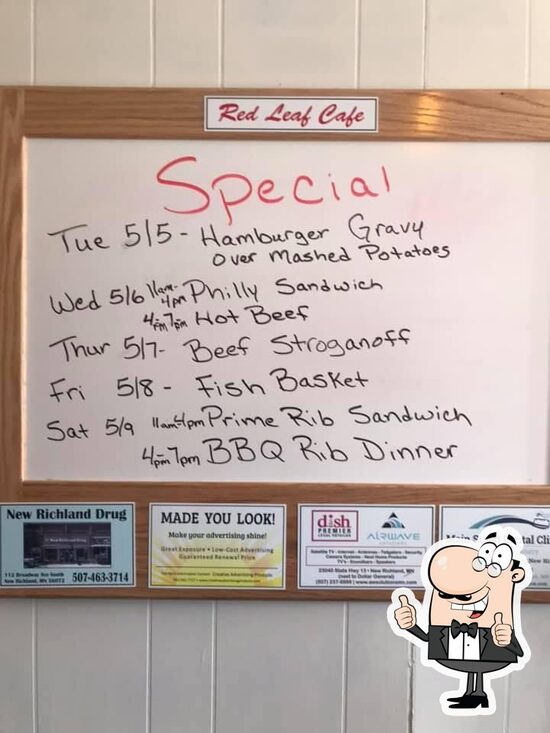 Red Leaf Cafe
Special
Tue 5/5 - Hamburger Gravy
over Mashed Potatoes
Wed 5/6 11am-4pm Philly Sandwich
4pm-7pm Hot Beef
Thur 5/7- Beef Stroganoff
Fri 5/8 - Fish Basket
Sat 5/9 11am-4pm Prime Rib Sandwich
4pm-7pm BBQ Rib Dinner
New Richland Drug
112 Broadway Ave South
New Richland, MN 56072
507-463-3714
MADE YOU LOOK!
Make your advertising shine!
Great Exposure • Low-Cost Advertising
Guaranteed Renewal Price
dish
PREMIER
LOCAL RETAILER
AIRWAVE
Satellite TV - Internet - Antennas - Tailgaters - Security
Camera Systems - Heat Home Products
TV's - Soundbars - Speakers
23040 State Hwy 13 • New Richland, MN
(next to Dollar General)
Main